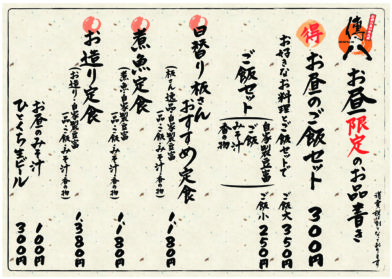 お昼限定のお品書き
得 お昼のご飯セット 300円
お好きなお料理とご飯セットで
ご飯大 350円
ご飯小 250円
ご飯セット
自家製豆富
ご飯
みそ汁
香の物
日替り板さんおすすめ定食 1,180円
(板さん逸品・自家製豆富
一品・ご飯・みそ汁・香の物)
煮魚定食 1,180円
(煮魚・自家製豆富
一品・ご飯・みそ汁・香の物)
お造り定食 1,380円
(お造り・自家製豆富
一品・ご飯・みそ汁・香の物)
お昼のみそ汁 100円
ひとくち生ビール 300円